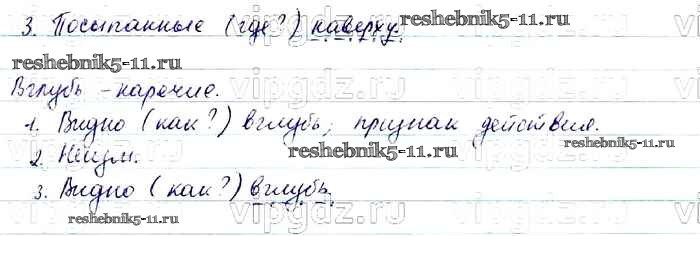 3. Посыпанные (где?) наверху.
reshebnik5-11.ru
reshebnik5-11.ru
Вглубь - наречие.
1. Видно (как?) вглубь; признак действия.
2. Неизм.
reshebnik5-11.ru
3. Видно (как?) вглубь.
reshebnik5-11.ru
vipgdz.ru
vipgdz.ru
vipgdz.ru
vipgdz.ru